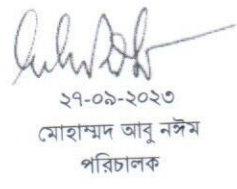 ২৭-০৯-২০২৩
মোহাম্মদ আবু নঈম
পরিচালক